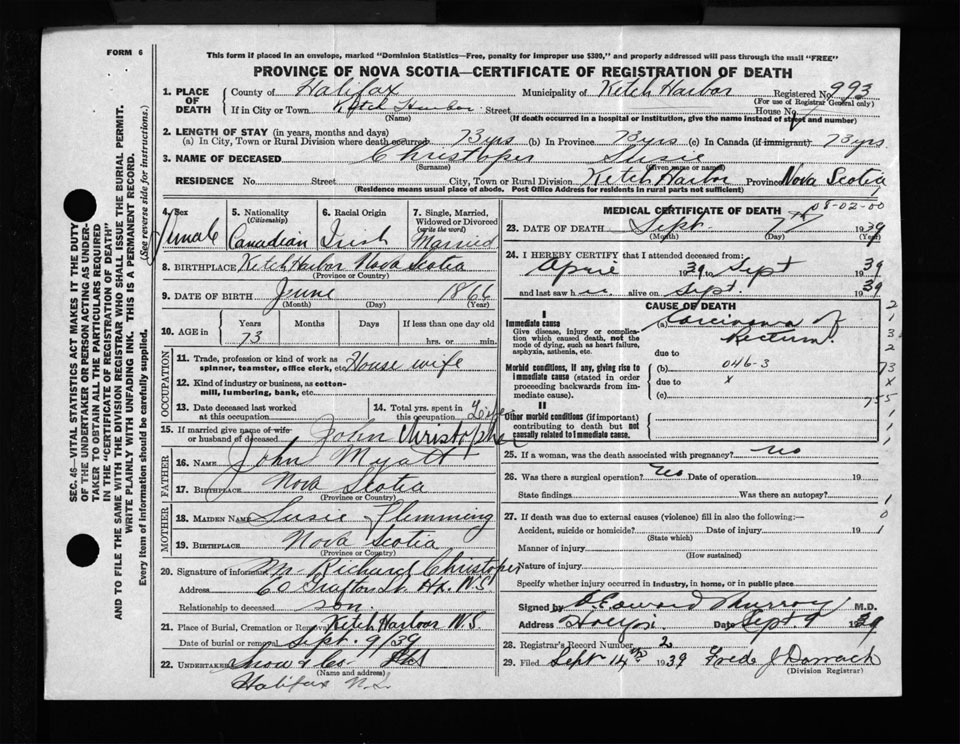 FORM 6
This form if placed in an envelope, marked "Dominion Statistics—Free, penalty for improper use $300," and properly addressed will pass through the mail "FREE"
PROVINCE OF NOVA SCOTIA—CERTIFICATE OF REGISTRATION OF DEATH
SEC. 45—VITAL STATISTICS ACT MAKES IT THE DUTY
OF THE UNDERTAKER OR PERSON ACTING AS UNDER-
TAKER TO OBTAIN ALL THE PARTICULARS REQUIRED
IN THE "CERTIFICATE OF REGISTRATION OF DEATH"
AND TO FILE THE SAME WITH THE DIVISION REGISTRAR WHO SHALL ISSUE THE BURIAL PERMIT.
WRITE PLAINLY WITH UNFADING INK. THIS IS A PERMANENT RECORD.
Every item of information should be carefully supplied. (See reverse side for instructions.)
1. PLACE OF DEATH County of Halifax Municipality of Ketch Harbor Registered No. 993
(For use of Registrar General only)
If in City or Town Ketch Harbor Street House No.
(Name) (If death occurred in a hospital or institution, give the name instead of street and number)
2. LENGTH OF STAY (in years, months and days)
(a) In City, Town or Rural Division where death occurred 73 yrs (b) In Province 73 yrs (c) In Canada (if immigrant) 73 yrs
3. NAME OF DECEASED Christoper Susie
(Surname) (Given name or names)
RESIDENCE No. Street City, Town or Rural Division Ketch Harbor Province Nova Scotia
(Residence means usual place of abode. Post Office Address for residents in rural parts not sufficient)
4. Sex Female
5. Nationality (Citizenship) Canadian
6. Racial Origin Irish
7. Single, Married, Widowed or Divorced (write the word) Married
8. BIRTHPLACE Ketch Harbor Nova Scotia
(Province or Country)
9. DATE OF BIRTH June 1866
(Month) (Day) (Year)
10. AGE in Years Months Days If less than one day
73 hrs. or min.
OCCUPATION
11. Trade, profession or kind of work as spinner, teamster, office clerk, etc. House wife
12. Kind of industry or business, as cotton-mill, lumbering, bank, etc.
13. Date deceased last worked at this occupation
14. Total yrs. spent in this occupation Life
15. If married give name of wife or husband of deceased John Christopher
FATHER
16. NAME John Myatt
17. BIRTHPLACE Nova Scotia
(Province or Country)
MOTHER
18. MAIDEN NAME Susie Flemming
19. BIRTHPLACE Nova Scotia
(Province or Country)
20. Signature of informant Mr Richard Christoper
Address 60 Grafton St Hx. N.S
Relationship to deceased son.
21. Place of Burial, Cremation or Removal Ketch Harbor N.S
Date of burial or removal Sept. 9/39
22. UNDERTAKER Snow & Co Ltd
(Name and address)
Halifax N.S.
MEDICAL CERTIFICATE OF DEATH 08-02-00
23. DATE OF DEATH Sept. 7th 1939
(Month) (Day) (Year)
24. I HEREBY CERTIFY that I attended deceased from:
April 1939 to Sept 1939
and last saw h er alive on Sept. 1939
CAUSE OF DEATH
I
Immediate cause
Give disease, injury or complication which caused death, not the mode of dying, such as heart failure, asphyxia, asthenia, etc.
(a) Carcinoma of Rectum.
due to
Morbid conditions, if any, giving rise to immediate cause (stated in order proceeding backwards from immediate cause).
(b) 046-3
due to x
(c) 755
II
Other morbid conditions (if important) contributing to death but not causally related to immediate cause.
25. If a woman, was the death associated with pregnancy? no
26. Was there a surgical operation? No Date of operation 19
State findings Was there an autopsy?
27. If death was due to external causes (violence) fill in also the following:—
Accident, suicide or homicide? Date of injury 19
(State which)
Manner of injury
(How sustained)
Nature of injury
Specify whether injury occurred in industry, in home, or in public place
Signed by Edward Murray M.D.
Address Date Sept 9 1939
28. Registrar's Record Number 2
29. Filed Sept 14th 1939 Fred J Darrach
(Division Registrar)